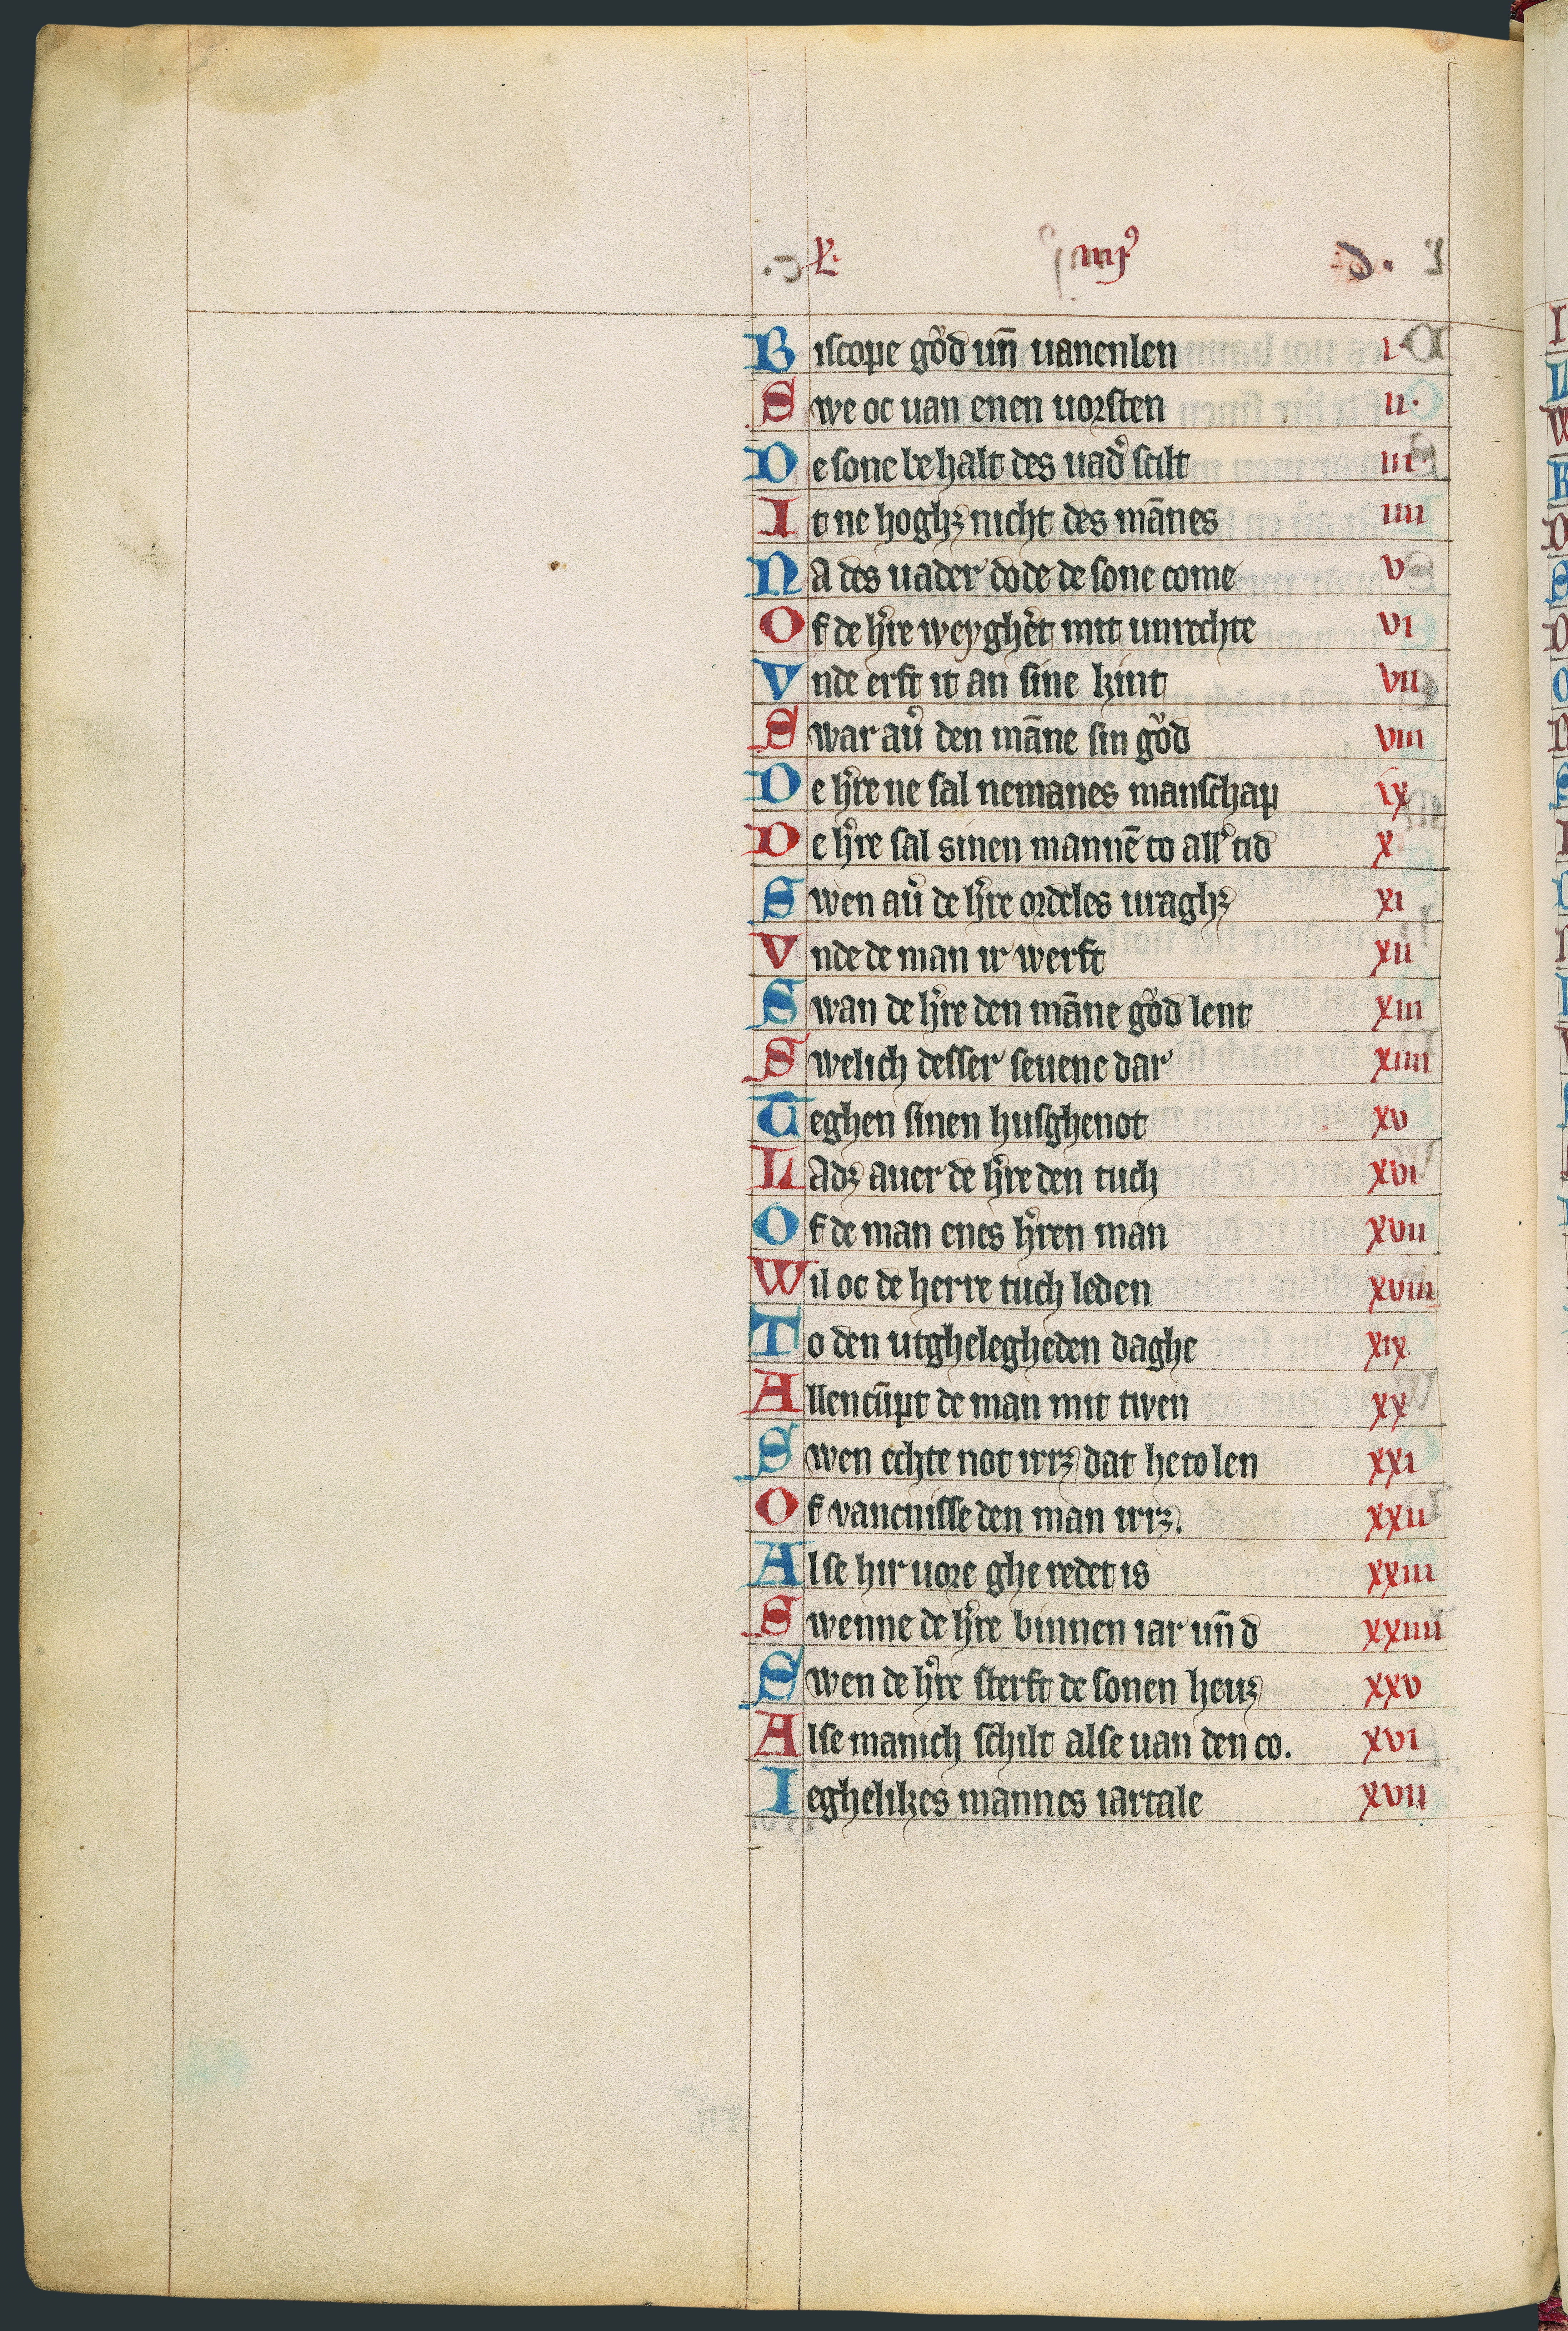 L. iiij⁹
Biscope gůd un̄ uanenlen I.
Swe oc uan enen uorsten II.
De sone behalt des uad͛ scilt III.
It ne hoghꝫ nicht des mānes IIII
Na des uader dode de sone come V
Of de h͛re weyghe͛t mit unrechte VI
Vnde erft it an sine kint VII
Swar au͛ den māne sin gůd VIII
De h͛re ne sal nemanes manschap IX
De h͛re sal sinen mannē to all͛ tid X
Swen au͛ de h͛re ordeles uraghꝫ XI
Vnde de man ir werft XII
Swan de h͛re den māne gůd lent XIII
Swelich desser seuene dar XIIII
Teghen sinen husghenot XV
Ladꝫ auer de h͛re den tuch XVI
Of de man enes h͛ren man XVII
Wil oc de herre tuch leden XVIII
To den utghelegheden daghe XIX
Allen cūpt de man mit twen XX
Swen echte not irrꝫ dat he to len XXI
Of vancnisse den man irrꝫ. XXII
Alse hir uore ghe redet is XXIII
Swenne de h͛re binnen iar un̄ d XXIIII
Swen de h͛re sterft de sonen heuꝫ XXV
Alse manich schilt alse uan den co. XVI
Ieghelikes mannes iartale XVII